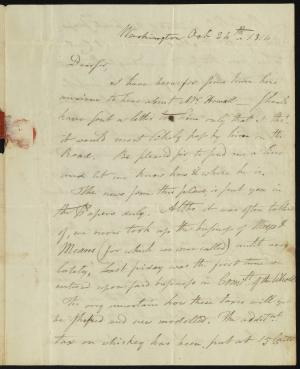 Washington Oct. 24th 1814
Dear Sir,
I have heretofore some time been
anxious to hear about Mr Howell — I should
have put a letter to him only that I tho't
it would most likely pass by him on the
Road. Be pleased sir to send me a line
and let me know how & where he is.
The news from this place is sent you in
the Papers daily. Altho' it was often talked
of, we never took up the business of Ways &
Means (for which we were called) until very
lately, last friday was the first time we
entered upon said business in Comtt. of the Whole
Tis very uncertain how these taxes will yet
be shaped and new modelled. The addit.l
tax on whiskey has been, put at 15 Cents